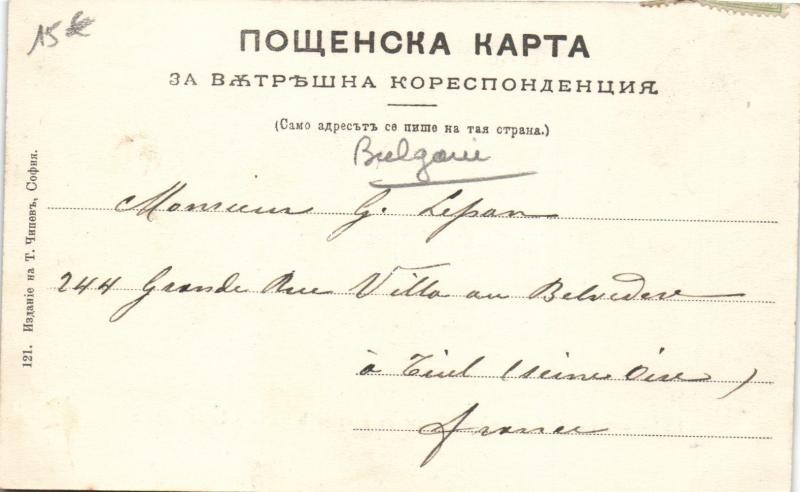 15 €
ПОЩЕНСКА КАРТА
ЗА ВѪТРѢШНА КОРЕСПОНДЕНЦИЯ.
(Само адресътъ се пише на тая страна.)
Bulgarie
Monsieur G. Lepan
244 Grande Rue Villa au Belvedere
à Triel (Seine Oise)
france
121. Издание на Т. Чипевъ, София.